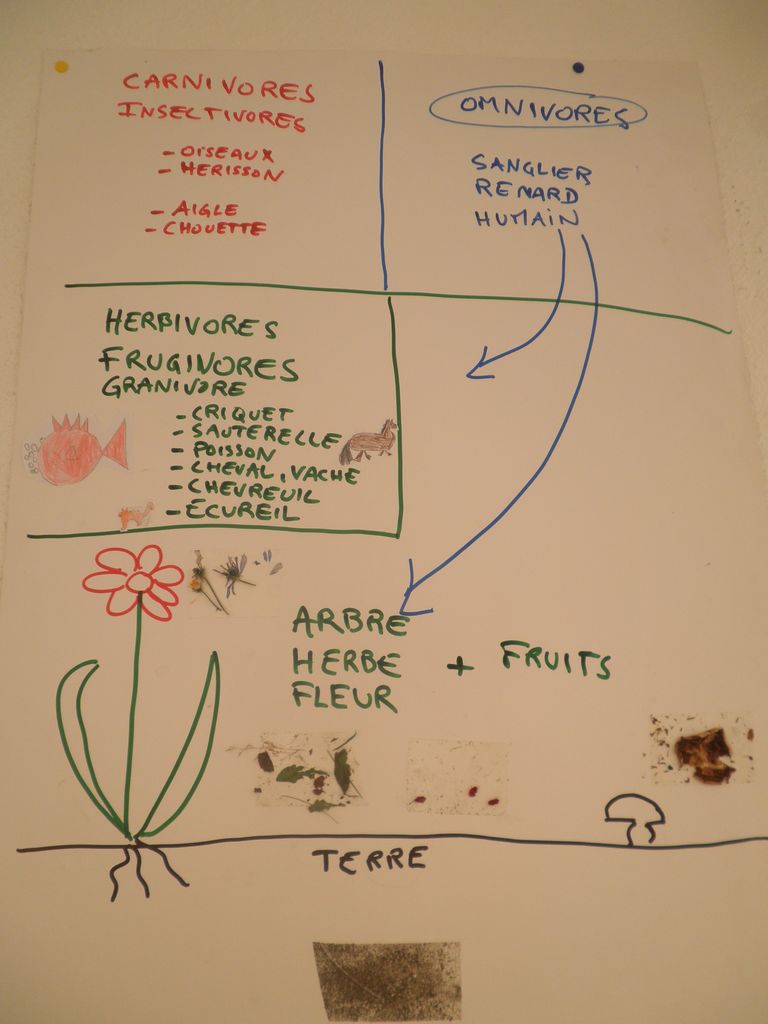 CARNIVORES
INSECTIVORES
- OISEAUX
- HERISSON
- AIGLE
- CHOUETTE
OMNIVORES
SANGLIER
RENARD
HUMAIN
HERBIVORES
FRUGIVORES
GRANIVORE
- CRIQUET
- SAUTERELLE
- POISSON
- CHEVAL, VACHE
- CHEVREUIL
- ECUREIL
ARBRE
HERBE + FRUITS
FLEUR
TERRE